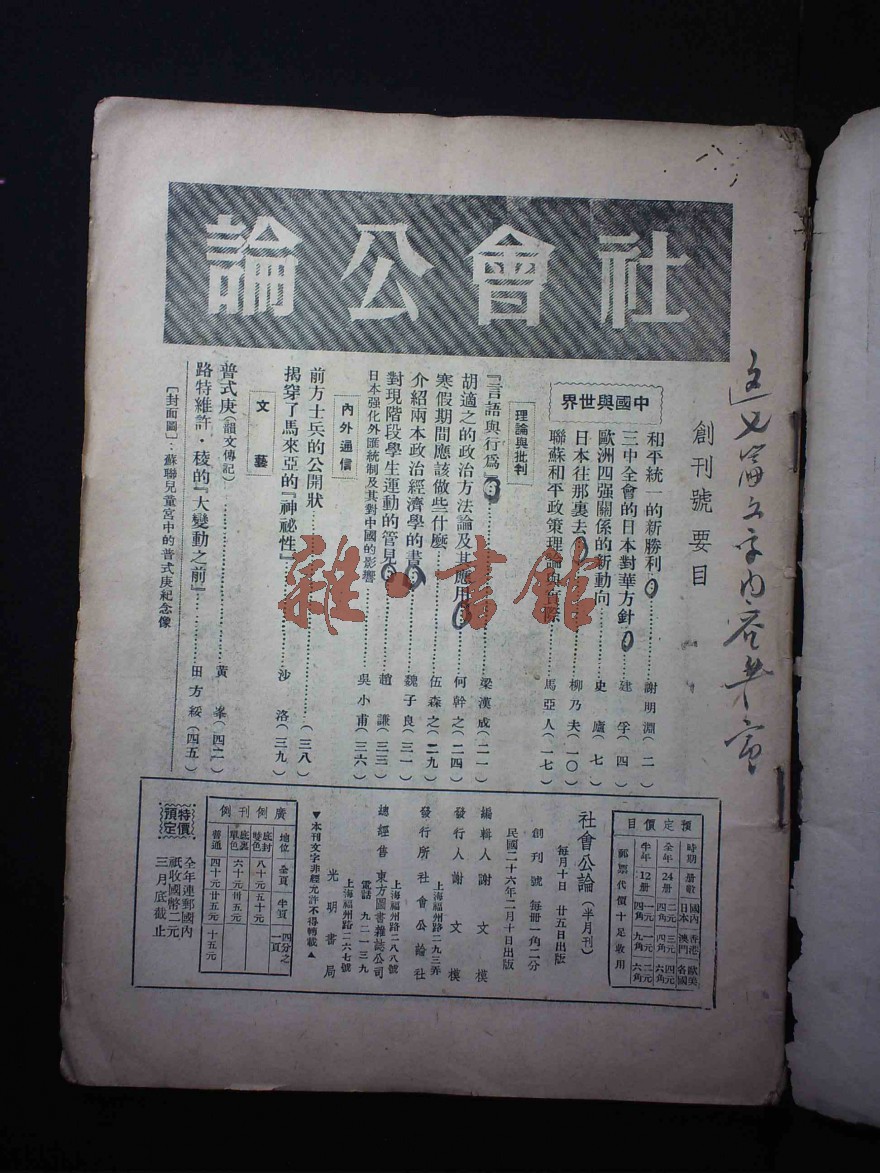 社會公論
創刊號 要目
中國與世界
和平統一的新勝利……謝明淵(二)
三中全會的日本對華方針……建孚(四)
歐洲四强關係的新動向……史廬(七)
日本往那裏去……柳乃夫(一〇)
聯蘇和平政策理論與實際……馬亞人(一七)
理論與批判
『言語與行爲』……梁漢成(二一)
胡適之的政治方法論及其應用……何幹之(二四)
寒假期間應該做些什麼……伍森之(二九)
介紹兩本政治經濟學的書……魏子良(三一)
對現階段學生運動的管見……趙謙(三三)
日本强化外匯統制及其對中國的影響……吳小甫(三六)
內外通信
前方士兵的公開狀……(三八)
揭穿了馬來亞的『神祕性』……沙洛(三九)
文藝
普式庚(韻文傳記)……黃峯(四二)
路特維許·稜的『大變動之前』……田方綏(四五)
〔封面圖〕:蘇聯兒童宮中的普式庚紀念像
預定價目
時期 册數 國內 日本 香港 澳門 歐美 各國
全年 24册 二元四角 三元四角 四元六角
半年 12册 一元四角 一元九角 二元六角
郵票代價十足收用
社會公論(半月刊)
每月十日 廿五日出版
創刊號 每冊一角二分
民國二十六年二月十日出版
編輯人 謝文模
發行人 謝文模
上海福州路二九三弄
發行所 社會公論社
上海福州路二八八號
總經售 東方圖書雜誌公司
電話 九二一三九
上海福州路二六七號
光明書局
▼本刊文字非經允許不得轉載▲
廣例刊例
地位 全頁 半頁 四分之一頁
底封 彩色 八十元 五十元
底裏 單色 六十元 卅五元
普通 四十元 廿五元 十五元
特價預定
全年連郵國內
祇收國幣二元
三月底截止
雜·書館